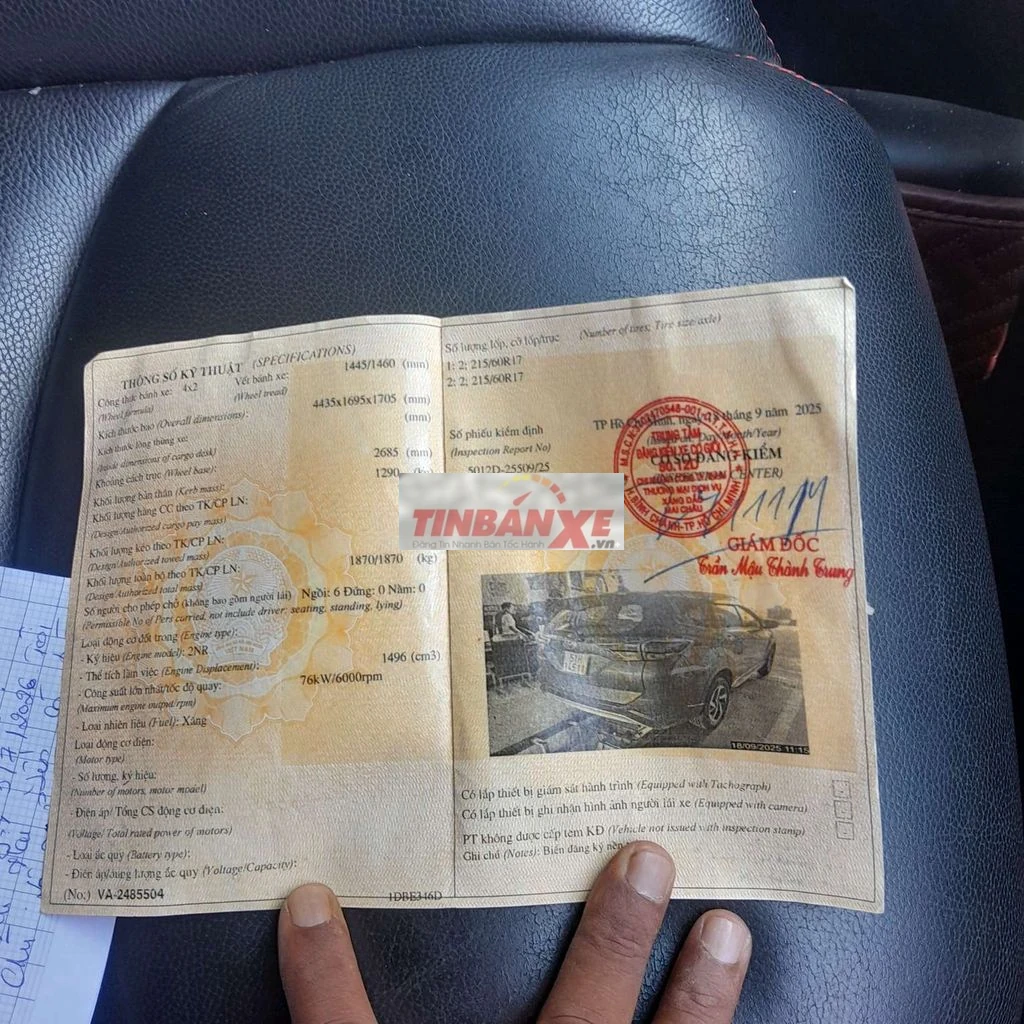 THÔNG SỐ KỸ THUẬT (SPECIFICATIONS)
Công thức bánh xe: 4x2 Vết bánh xe: 1445/1460 (mm)
(Wheel formula) (Wheel tread)
Kích thước bao (Overall dimensions): 4435x1695x1705 (mm)
Kích thước lòng thùng xe: (mm)
(Inside dimensions of cargo deck)
Khoảng cách trục (Wheel base): 2685 (mm)
Khối lượng bản thân (Kerb mass): 1290
Khối lượng hàng CC theo TK/CP LN:
(Design/Authorized cargo pay mass)
Khối lượng kéo theo TK/CP LN:
(Design/Authorized towed mass)
Khối lượng toàn bộ theo TK/CP LN: 1870/1870 (kg)
(Design/Authorized total mass)
Số người cho phép chở (không bao gồm người lái) Ngồi: 6 Đứng: 0 Nằm: 0
(Permissible No of Pers carried, not include driver: seating, standing, lying)
Loại động cơ đốt trong (Engine type):
- Ký hiệu (Engine model): 2NR
- Thể tích làm việc (Engine Displacement): 1496 (cm3)
- Công suất lớn nhất/tốc độ quay: 76kW/6000rpm
(Maximum engine output/rpm)
- Loại nhiên liệu (Fuel): Xăng
Loại động cơ điện:
(Motor type)
- Số lượng, ký hiệu:
(Number of motors, motor model)
- Điện áp/ Tổng CS động cơ điện:
(Voltage/ Total rated power of motors)
- Loại ắc quy (Battery type):
- Điện áp/dung lượng ắc quy (Voltage/Capacity):
(No.) VA-2485504
1DBE346D
Số lượng lốp, cỡ lốp/trục (Number of tires; Tire size/axle)
1: 2; 215/60R17
2: 2; 215/60R17
Số phiếu kiểm định
(Inspection Report No)
5012D-25509/25
TP Hồ Chí Minh, ngày tháng 9 năm 2025
Day/Month/Year)
CƠ SỞ ĐĂNG KIỂM
CENTER)
TRUNG TÂM
ĐĂNG KIỂM XE CƠ GIỚI
50.12D
THƯƠNG MẠI DỊCH VỤ
XĂNG DẦU
MAI CHÂU
H. BÌNH CHÁNH-TP. HỒ CHÍ MINH
GIÁM ĐỐC
Trần Mậu Thành Trung
TINBANXE.vn
Đăng Tin Nhanh Bán Tốc Hành
VIỆT NAM
18/09/2025 11:15
Có lắp thiết bị giám sát hành trình (Equipped with Tachograph)
Có lắp thiết bị ghi nhận hình ảnh người lái xe (Equipped with camera)
PT không được cấp tem KĐ (Vehicle not issued with inspection stamp)
Ghi chú (Notes): Biển đăng ký nền